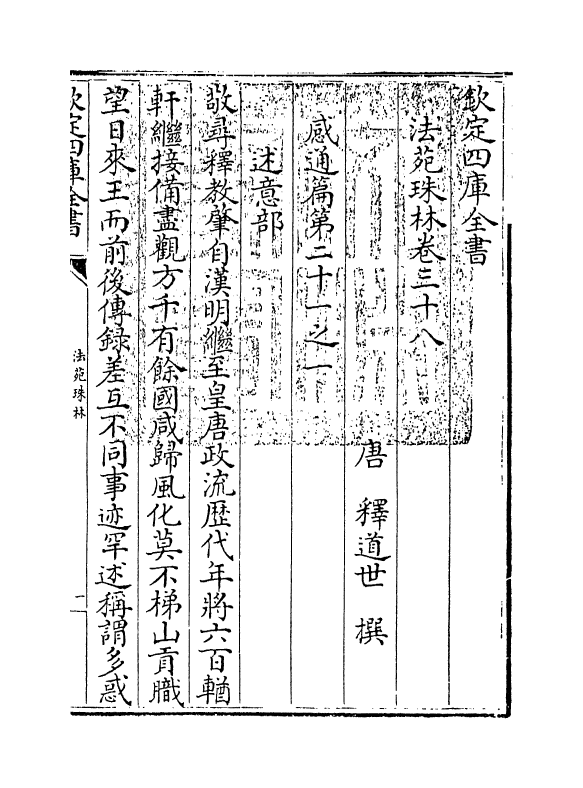 欽定四庫全書
法苑珠林卷三十八
唐 釋道世 撰
感通篇第二十一之一
述意部
敬尋釋教肇自漢明繼至皇唐政流歴代年將六百輶
軒繼接備盡觀方千有餘國咸歸風化莫不梯山貢職
望日來王而前後傳録差互不同事迹罕述稱謂多惑
欽定四庫全書
法苑珠林
一